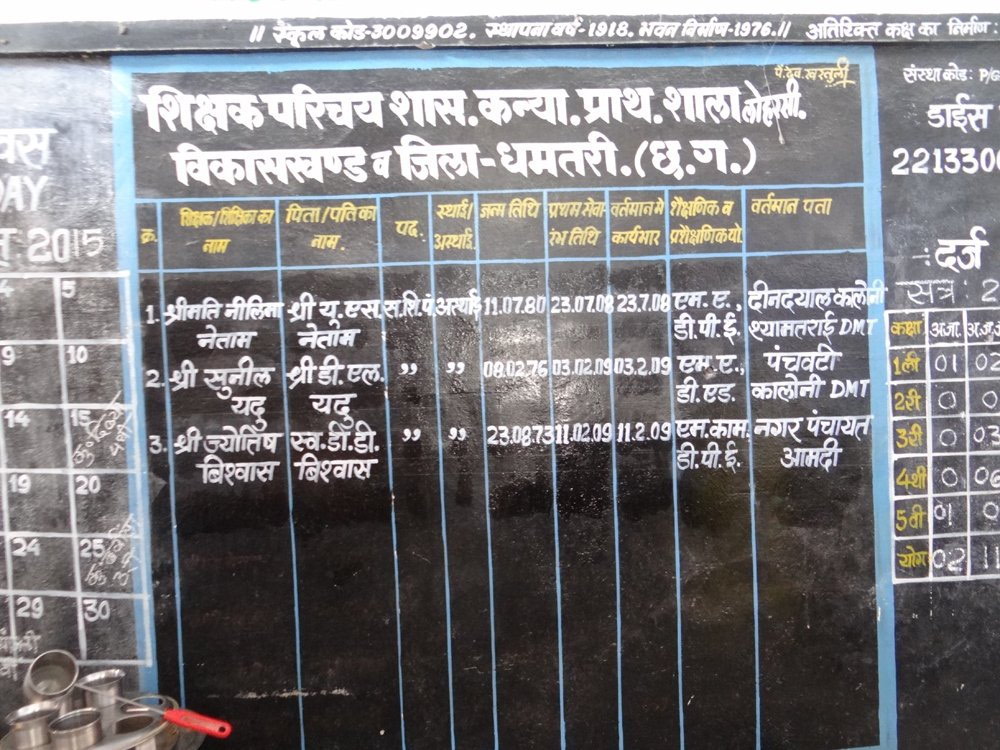 ॥ स्कूल कोड-3009902. स्थापना वर्ष-1918. भवन निर्माण-1976.॥ अतिरिक्त कक्ष का निर्माण:
शिक्षक परिचय शास. कन्या. प्राथ. शाला लोहरसी.
विकासखण्ड व जिला-धमतरी.(छ.ग.)
क्र. शिक्षक/शिक्षिका का नाम पिता/पतिका नाम. पद. स्थाई/अस्थाई. जन्म तिथि प्रथम सेवारंभ तिथि वर्तमान मे कार्यभार शैक्षणिक व प्रशैक्षणिक यो. वर्तमान पता
1. श्रीमति नीलिमा श्री यू.एस. स.शि.पं अस्थाई 11.07.80 23.07.08 23.7.08 एम.ए., दीनदयाल कालोनी
नेताम नेताम डी.पी.ई. श्यामतराई DMT
2. श्री सुनील श्री डी.एल. ,, ,, 08.02.76 03.02.09 03.2.09 एम.ए., पंचवटी
यदु यदु डी.एड. कालोनी DMT
3. श्री ज्योतिष स्व.डी.डी. ,, ,, 23.08.73 11.02.09 11.2.09 एम.काम. नगर पंचायत
बिश्वास बिश्वास डी.पी.ई. आमदी
DAY
2015
5
9 10
14 15
19 20
24 25
29 30
संस्था कोड: P/G
डाईस
221330
:दर्ज
सत्र: 2
कक्षा अ.जा. अ.ज.
1ली 01 02
2री 0 0
3री 0 03
4थी 0 06
5वी 01 0
योग 02 11